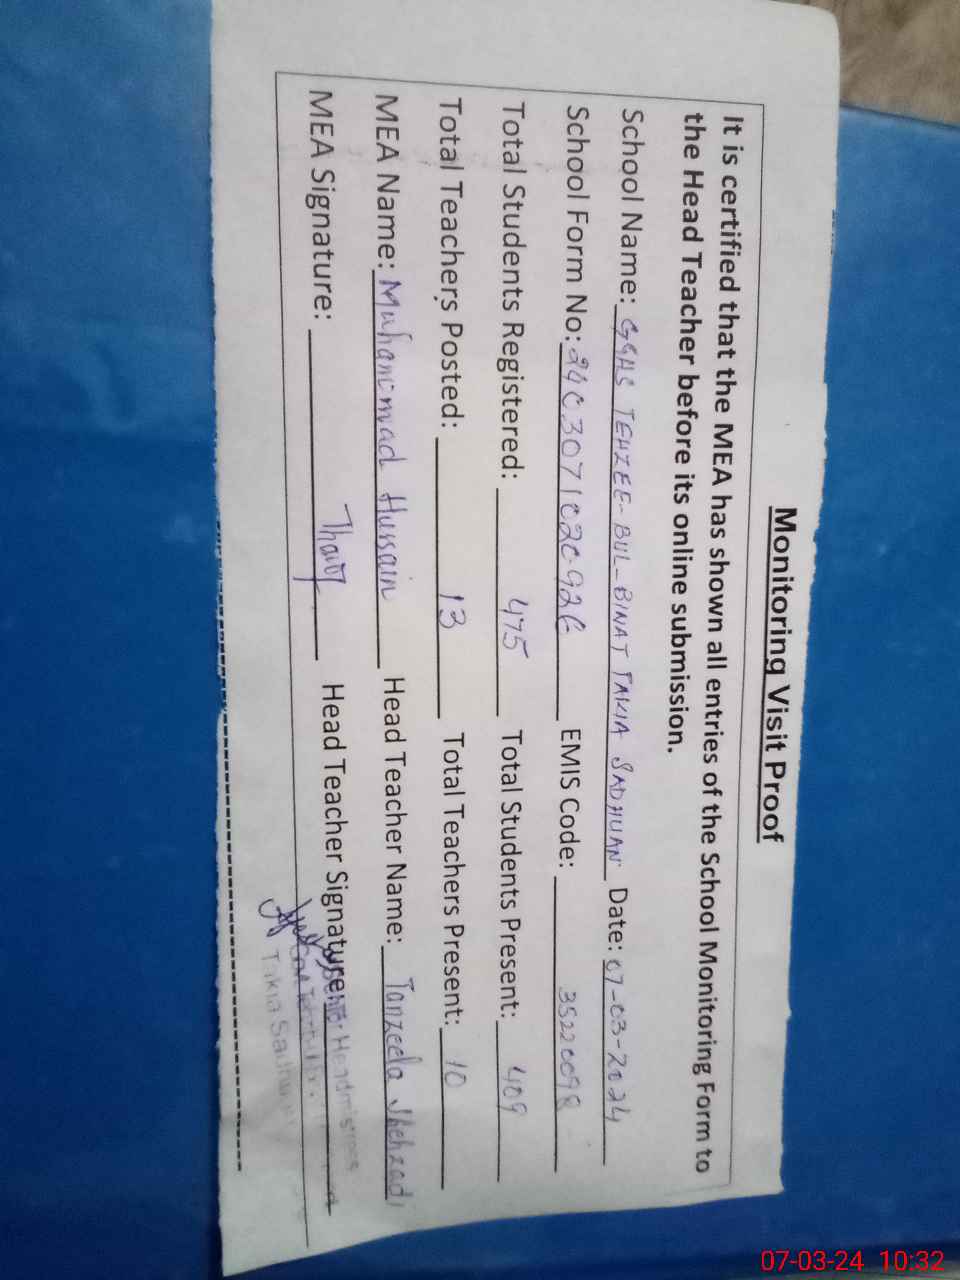 Monitoring Visit Proof
It is certified that the MEA has shown all entries of the School Monitoring Form to
the Head Teacher before its online submission.
School Name: GGHS TEHZEE-BUL-BINAT TAKIA SADHUAN Date: 07-03-2024
School Form No: EMIS Code:
Total Students Registered: 475 Total Students Present: 409
Total Teachers Posted: 13 Total Teachers Present: 10
MEA Name: Muhammad Hussain Head Teacher Name: Tanzeela Shehzadi
MEA Signature: Head Teacher Signature:
Headmistress
Takia Sadhuan
07-03-24 10:32